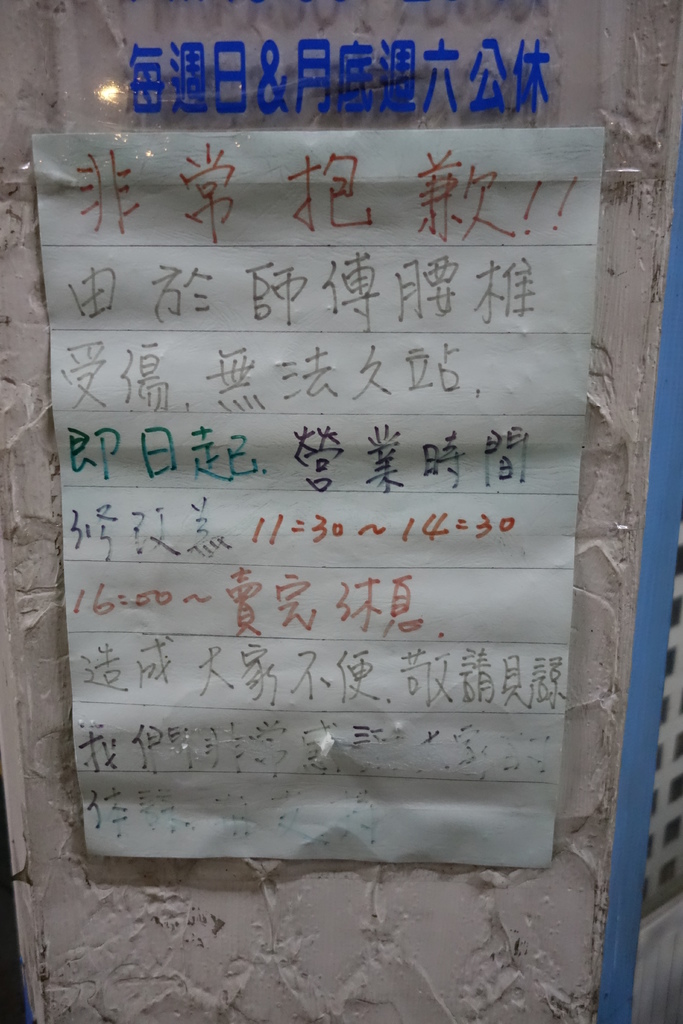 每週日&月底週六公休
非常抱歉!!
由於師傅腰椎
受傷,無法久站,
即日起.營業時間
修改為 11:30~14:30
16:00~賣完休息.
造成大家不便.敬請見諒
我們非常感謝大家的
体諒.